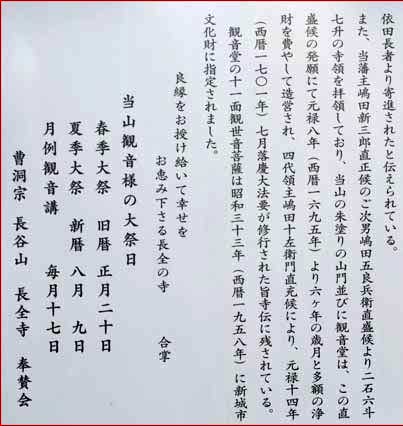 依田長者より寄進されたと伝えられている。
また、当藩主嶋田新三郎直正候のご次男嶋田五良兵衛直盛候より二石六斗
七升の寺領を拝領しており、当山の朱塗りの山門並びに観音堂は、この直
盛候の発願にて元禄八年（西暦一六九五年）より六ヶ年の歳月と多額の浄
財を費やして造営され、四代領主嶋田十左衛門直充候により、元禄十四年
（西暦一七〇一年）七月落慶大法要が修行された旨寺伝に残されている。
観音堂の十一面観世音菩薩は昭和三十三年（西暦一九五八年）に新城市
文化財に指定されました。
良縁をお授け給いて幸せを
お恵み下さる長全の寺　合掌
当山観音様の大祭日
春季大祭　旧暦　正月二十日
夏季大祭　新暦　八月　九日
月例観音講　毎月十七日
曹洞宗　長谷山　長全寺　奉賛会